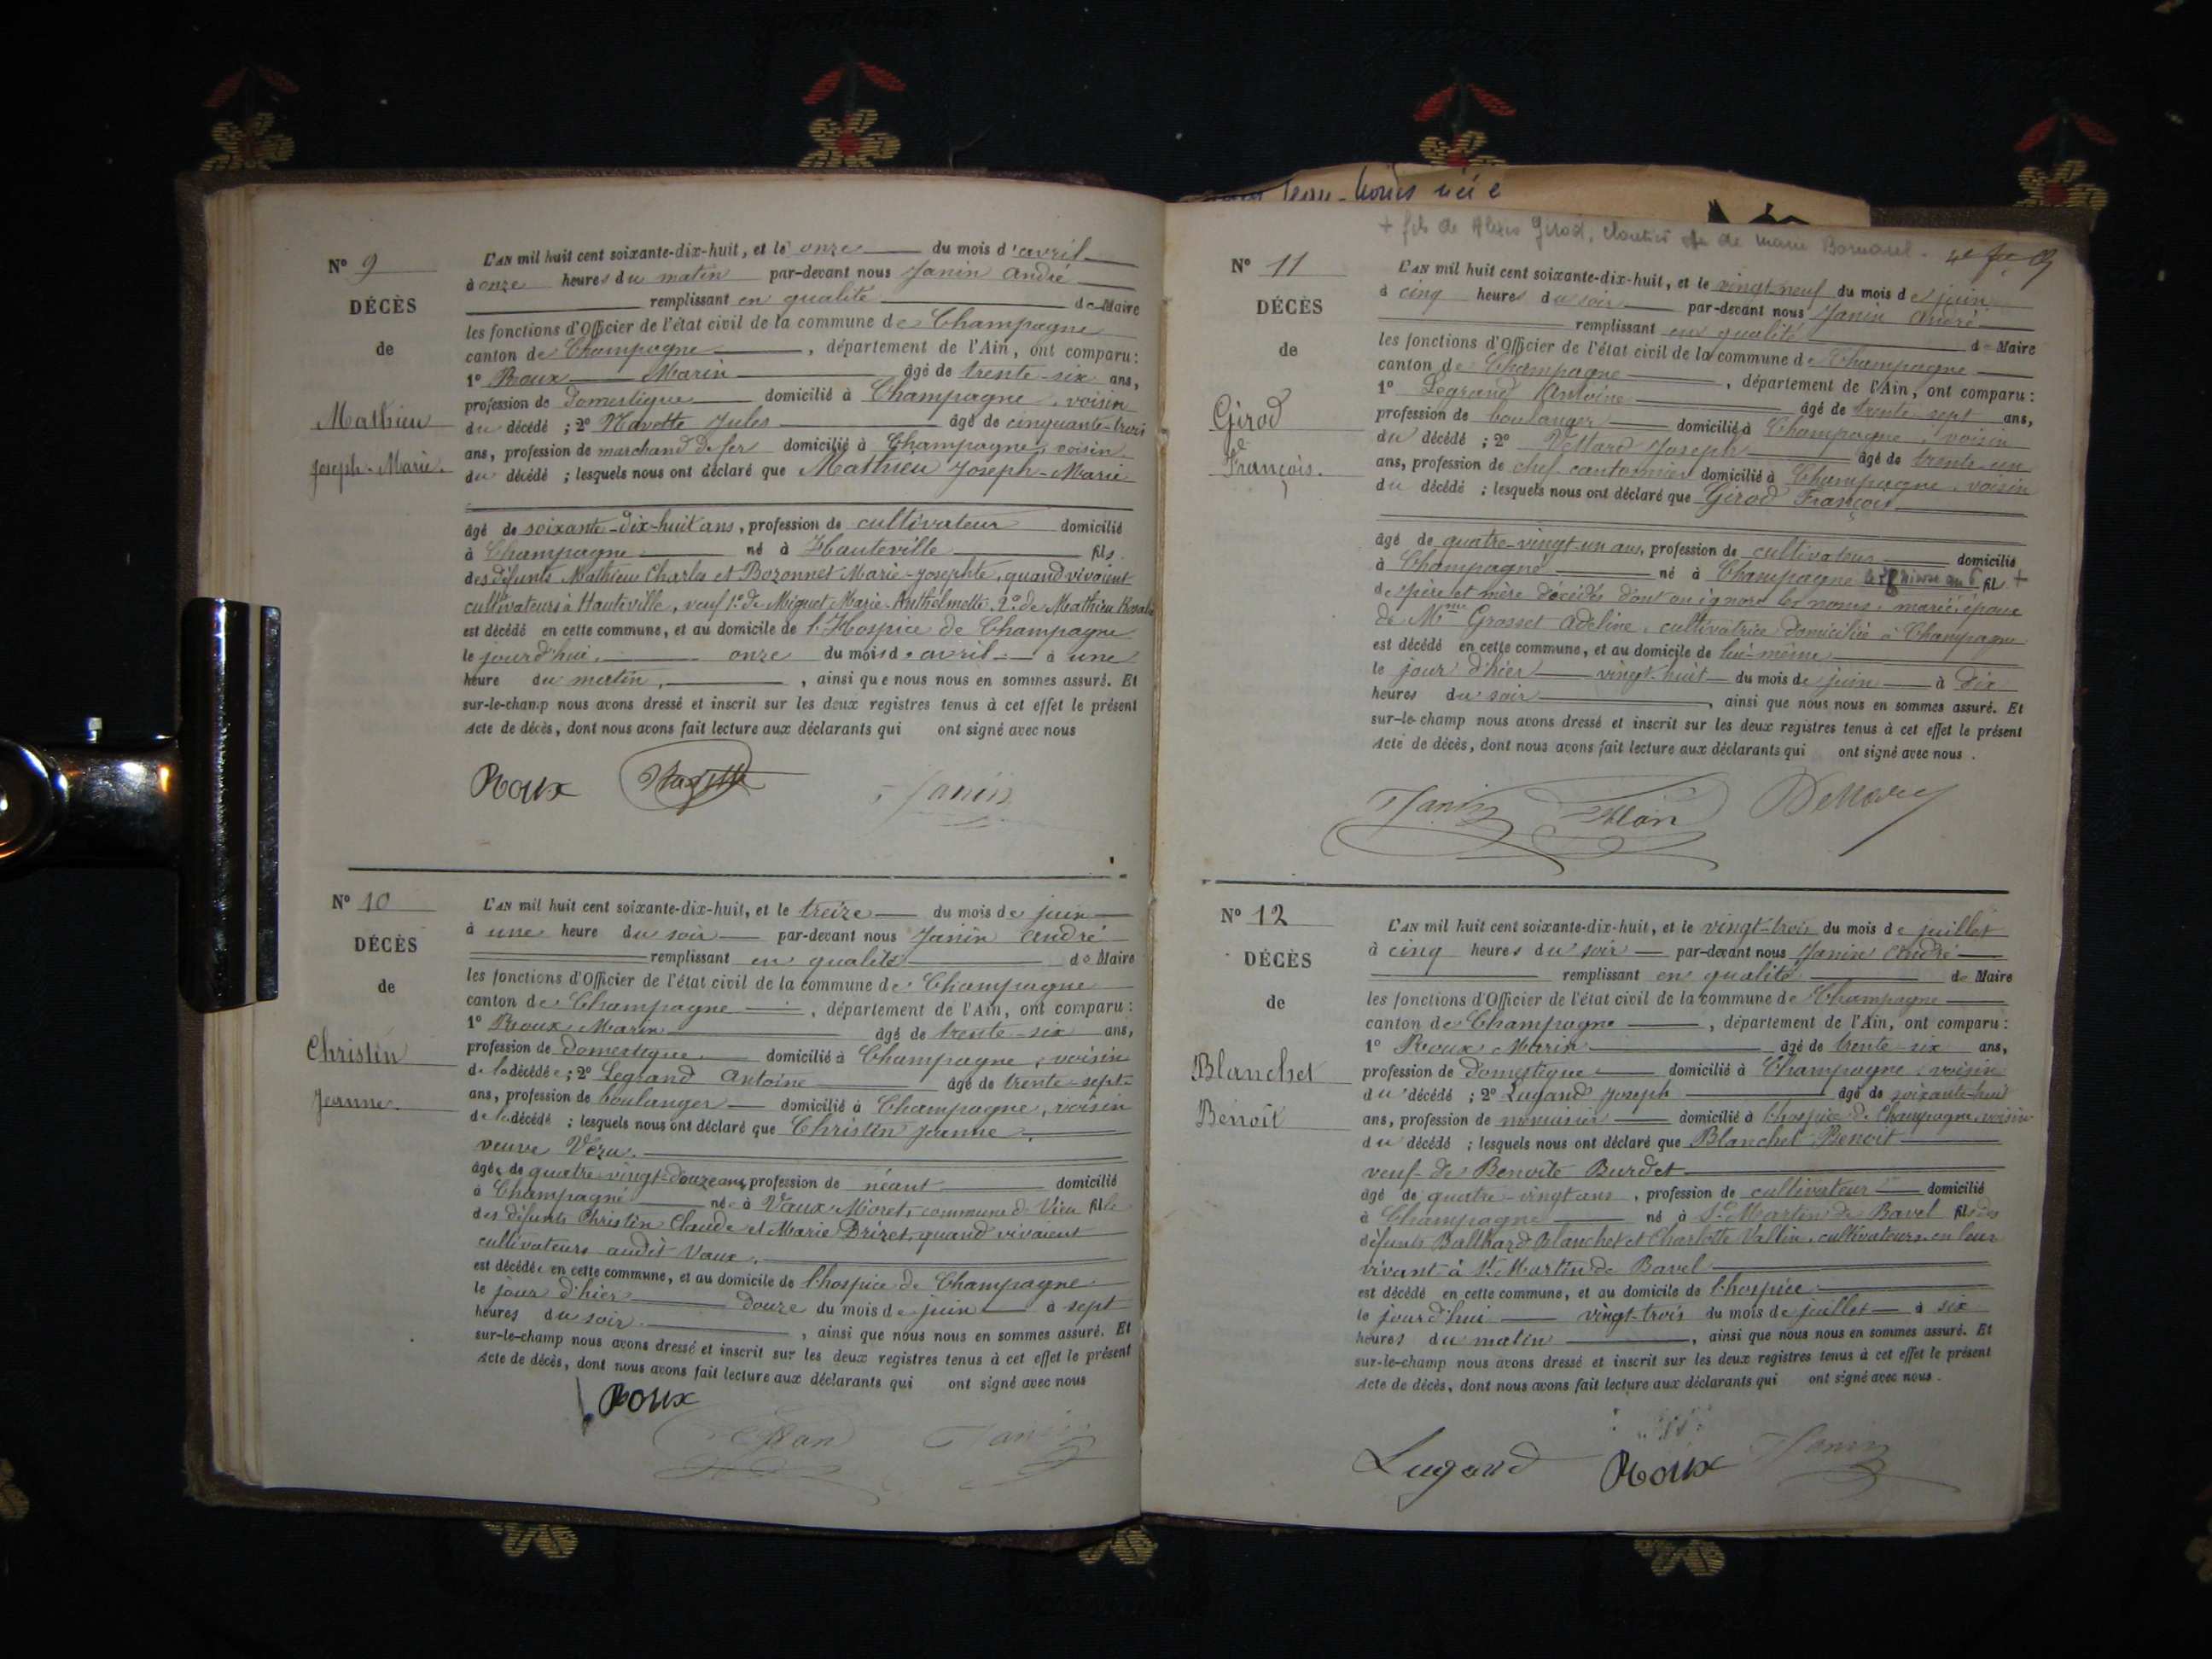 N° 9
DÉCÈS
de
Mathieu
Joseph-Marie.
L'AN mil huit cent soixante-dix-huit, et le onze du mois d'avril
à onze heures du matin par-devant nous Janin André
remplissant en qualité de Maire
les fonctions d'Officier de l'état civil de la commune de Champagne
canton de Champagne, département de l'Ain, ont comparu:
1° Roux Marin âgé de trente-six ans,
profession de Domestique domicilié à Champagne, voisin
du décédé ; 2° Navette Jules âgé de cinquante-trois
ans, profession de marchand de fer domicilié à Champagne, voisin
du décédé ; lesquels nous ont déclaré que Mathieu Joseph-Marie
âgé de soixante-dix-huit ans, profession de cultivateur domicilié
à Champagne né à Hauteville fils
des défunts Mathieu Charles et Bozonnet Marie-Josephte, quand vivaient
cultivateurs à Hauteville, veuf 1° de Miguet Marie-Anthelmette, 2° de Mathieu
est décédé en cette commune, et au domicile de l'Hospice de Champagne
le jourd'hui, onze du mois d'avril à une
heure du matin, ainsi que nous nous en sommes assuré. Et
sur-le-champ nous avons dressé et inscrit sur les deux registres tenus à cet effet le présent
Acte de décès, dont nous avons fait lecture aux déclarants qui ont signé avec nous
Roux Navette Janin
N° 10
DÉCÈS
de
Christin
Jeanne.
L'AN mil huit cent soixante-dix-huit, et le treize du mois de juin
à une heure du soir par-devant nous Janin André
remplissant en qualité de Maire
les fonctions d'Officier de l'état civil de la commune de Champagne
canton de Champagne, département de l'Ain, ont comparu:
1° Roux Marin âgé de trente-six ans,
profession de domestique domicilié à Champagne, voisin
de la décédée ; 2° Legrand Antoine âgé de trente-sept
ans, profession de boulanger domicilié à Champagne, voisin
de la décédé ; lesquels nous ont déclaré que Christin Jeanne,
veuve Vézu.
âgée de quatre-vingt-douze ans, profession de néant domicilié
à Champagne née à Vaux-Moret, commune de Vieu fille
des défunts Christin Claude et Marie Drizet, quand vivaient
cultivateurs audit Vaux.
est décédée en cette commune, et au domicile de l'hospice de Champagne
le jour d'hier douze du mois de juin à sept
heures du soir, ainsi que nous nous en sommes assuré. Et
sur-le-champ nous avons dressé et inscrit sur les deux registres tenus à cet effet le présent
Acte de décès, dont nous avons fait lecture aux déclarants qui ont signé avec nous
Roux Janin
née
+ fils de Alexis Girod, cloutier de marie
N° 11
DÉCÈS
de
Girod
François.
L'AN mil huit cent soixante-dix-huit, et le vingt-neuf du mois de juin
à cinq heures du soir par-devant nous Janin André
remplissant en qualité de Maire
les fonctions d'Officier de l'état civil de la commune de Champagne
canton de Champagne, département de l'Ain, ont comparu:
1° Legrand Antoine âgé de trente-sept ans,
profession de boulanger domicilié à Champagne, voisin
du décédé ; 2° Joseph âgé de trente-un
ans, profession de chef cantonnier domicilié à Champagne, voisin
du décédé ; lesquels nous ont déclaré que Girod François
âgé de quatre-vingt-un ans, profession de cultivateur domicilié
à Champagne né à Champagne fils +
de père et mère décédés dont on ignore les noms, marié, époux
de Mme Grosset Adeline, cultivatrice domiciliée à Champagne
est décédé en cette commune, et au domicile de lui-même
le jour d'hier vingt-huit du mois de juin à dix
heures du soir, ainsi que nous nous en sommes assuré. Et
sur-le-champ nous avons dressé et inscrit sur les deux registres tenus à cet effet le présent
Acte de décès, dont nous avons fait lecture aux déclarants qui ont signé avec nous.
Janin
N° 12
DÉCÈS
de
Blanchet
Benoît
L'AN mil huit cent soixante-dix-huit, et le vingt-trois du mois de juillet
à cinq heures du soir par-devant nous Janin André
remplissant en qualité de Maire
les fonctions d'Officier de l'état civil de la commune de Champagne
canton de Champagne, département de l'Ain, ont comparu:
1° Roux Marin âgé de trente-six ans,
profession de domestique domicilié à Champagne, voisin
du décédé ; 2° Lugand Joseph âgé de
ans, profession de menuisier domicilié à l'hospice de Champagne, voisin
du décédé ; lesquels nous ont déclaré que Blanchet Benoît
veuf de Benoîte Burdet
âgé de quatre-vingt ans, profession de cultivateur domicilié
à Champagne né à St Martin de Bavel fils des
défunts Balthazd Blanchet et Charlotte Vallin, cultivateurs en leur
vivant à St Martin de Bavel
est décédé en cette commune, et au domicile de l'hospice
le jourd'hui vingt-trois du mois de juillet à six
heures du matin, ainsi que nous nous en sommes assuré. Et
sur-le-champ nous avons dressé et inscrit sur les deux registres tenus à cet effet le présent
Acte de décès, dont nous avons fait lecture aux déclarants qui ont signé avec nous.
Lugand Roux Janin